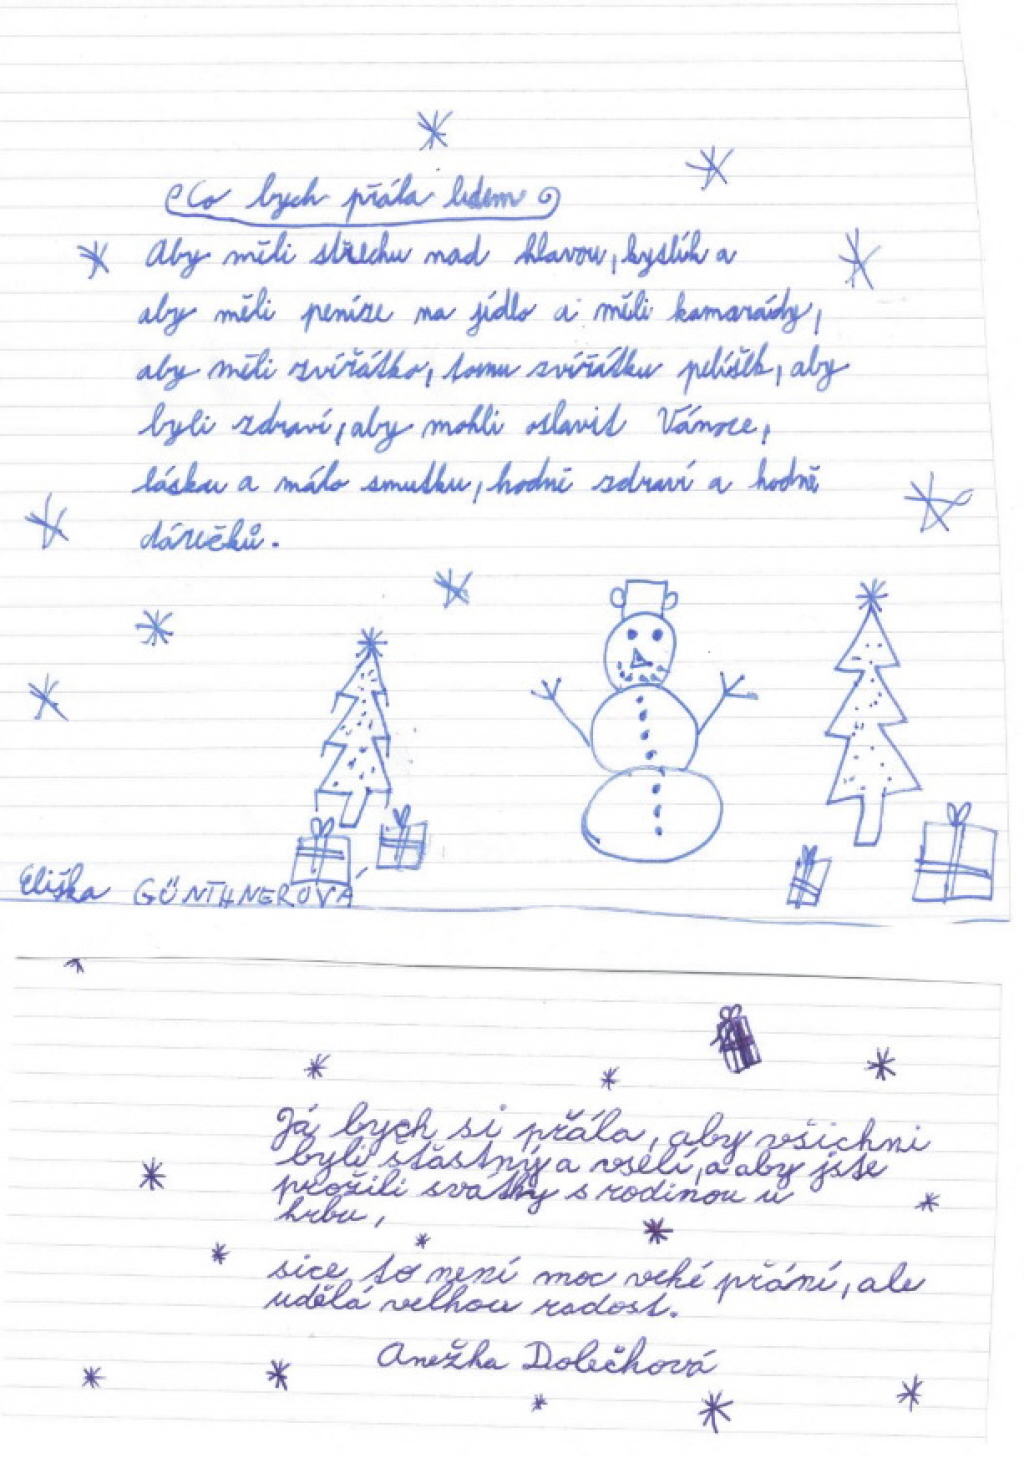 Co bych přála lidem
Aby měli střechu nad hlavou, kyslík a
aby měli peníze na jídlo a měli kamarády,
aby měli zvířátko, tomu zvířátku pelíšek, aby
byli zdraví, aby mohli oslavit Vánoce,
lásku a málo smutku, hodně zdraví a hodně
dárečků.
Eliška GÜNTHNEROVÁ
Já bych si přála, aby všichni
byli šťastný a veselí, a aby jste
prožili svátky s rodinou u
krbu,
sice to není moc velké přání, ale
udělá velkou radost.
Anežka Dolečková